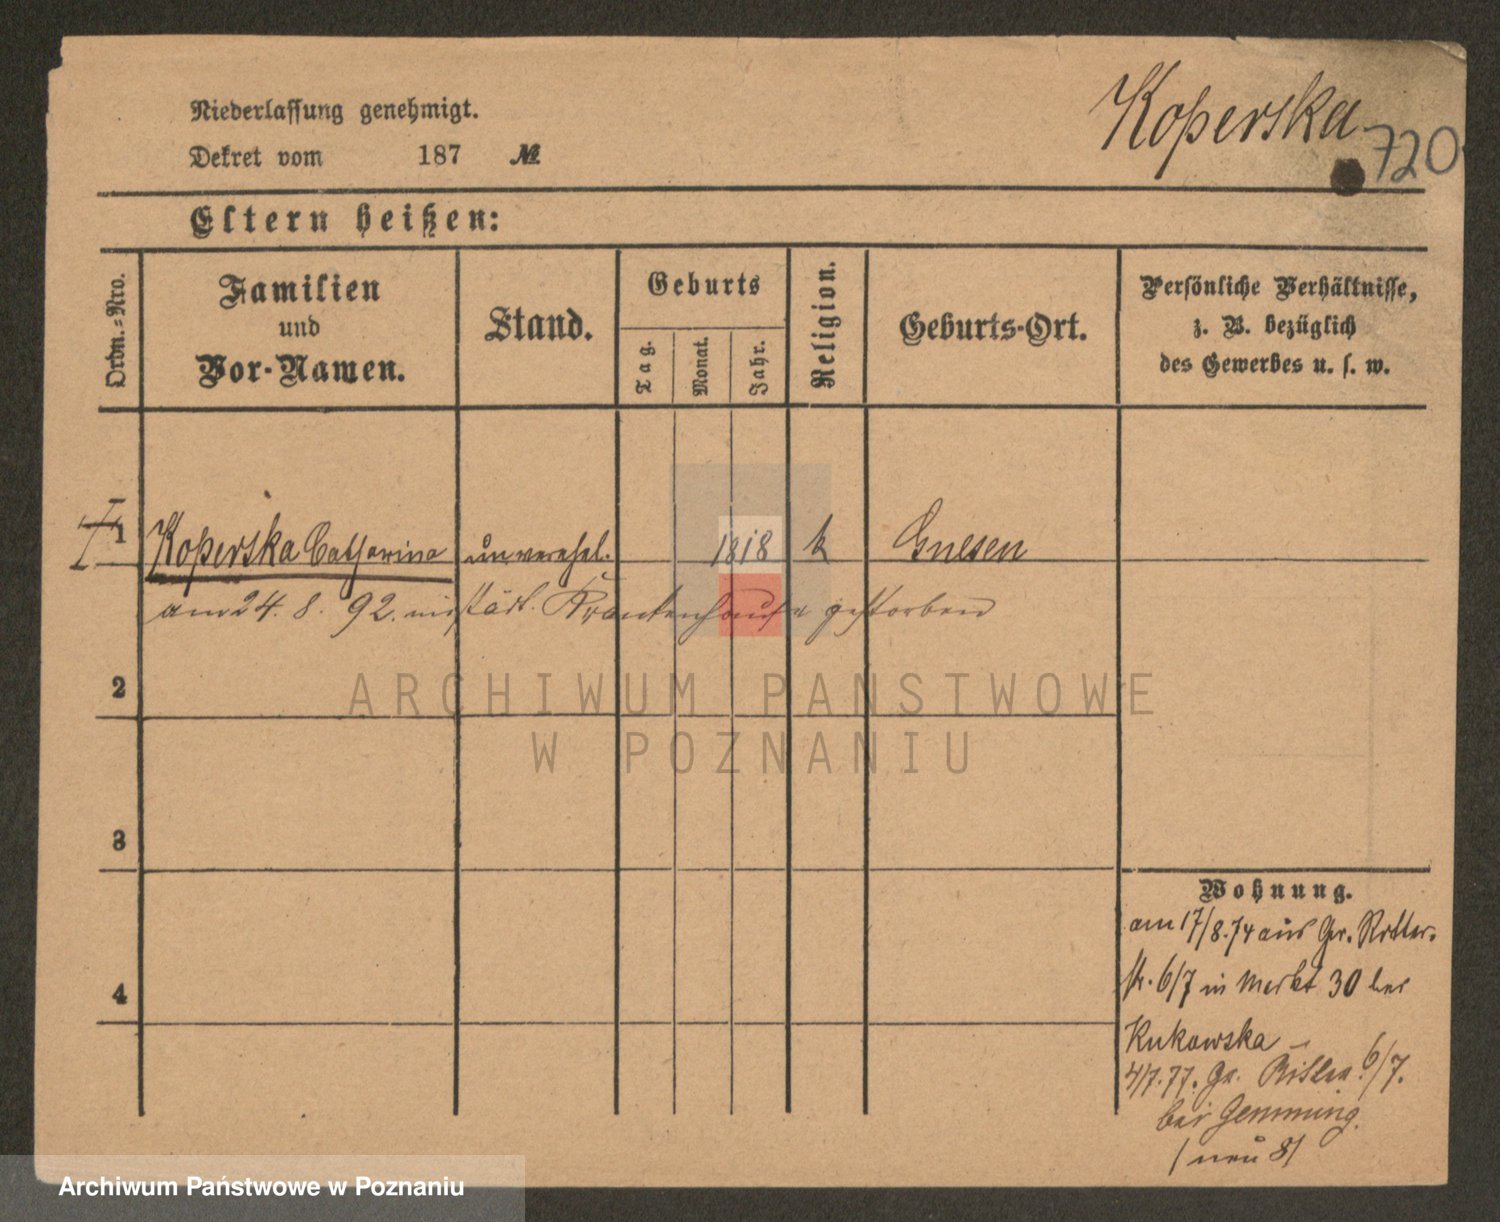 Niederlassung genehmigt.
Dekret vom 187 №
Koperska
720
Eltern heißen:
Ordn.=Nro.
Familien
und
Vor-Namen.
Stand.
Geburts
Tag.
Monat.
Jahr.
Religion.
Geburts-Ort.
Persönliche Verhältnisse,
z. B. bezüglich
des Gewerbes u. s. w.
1 Koperska Catharina unverehel. 1818 k Gnesen
am 24. 8. 92. im städt. Krankenhause gestorben
2
3
4
Wohnung.
am 17/8.74 aus Gr. Ritter-
str. 6/7 in Markt 30 bei
Kukowska –
4/7.77. Gr. Ritter 6/7.
bei Gemming.
/ neu 8/
ARCHIWUM PAŃSTWOWE
W POZNANIU
Archiwum Państwowe w Poznaniu